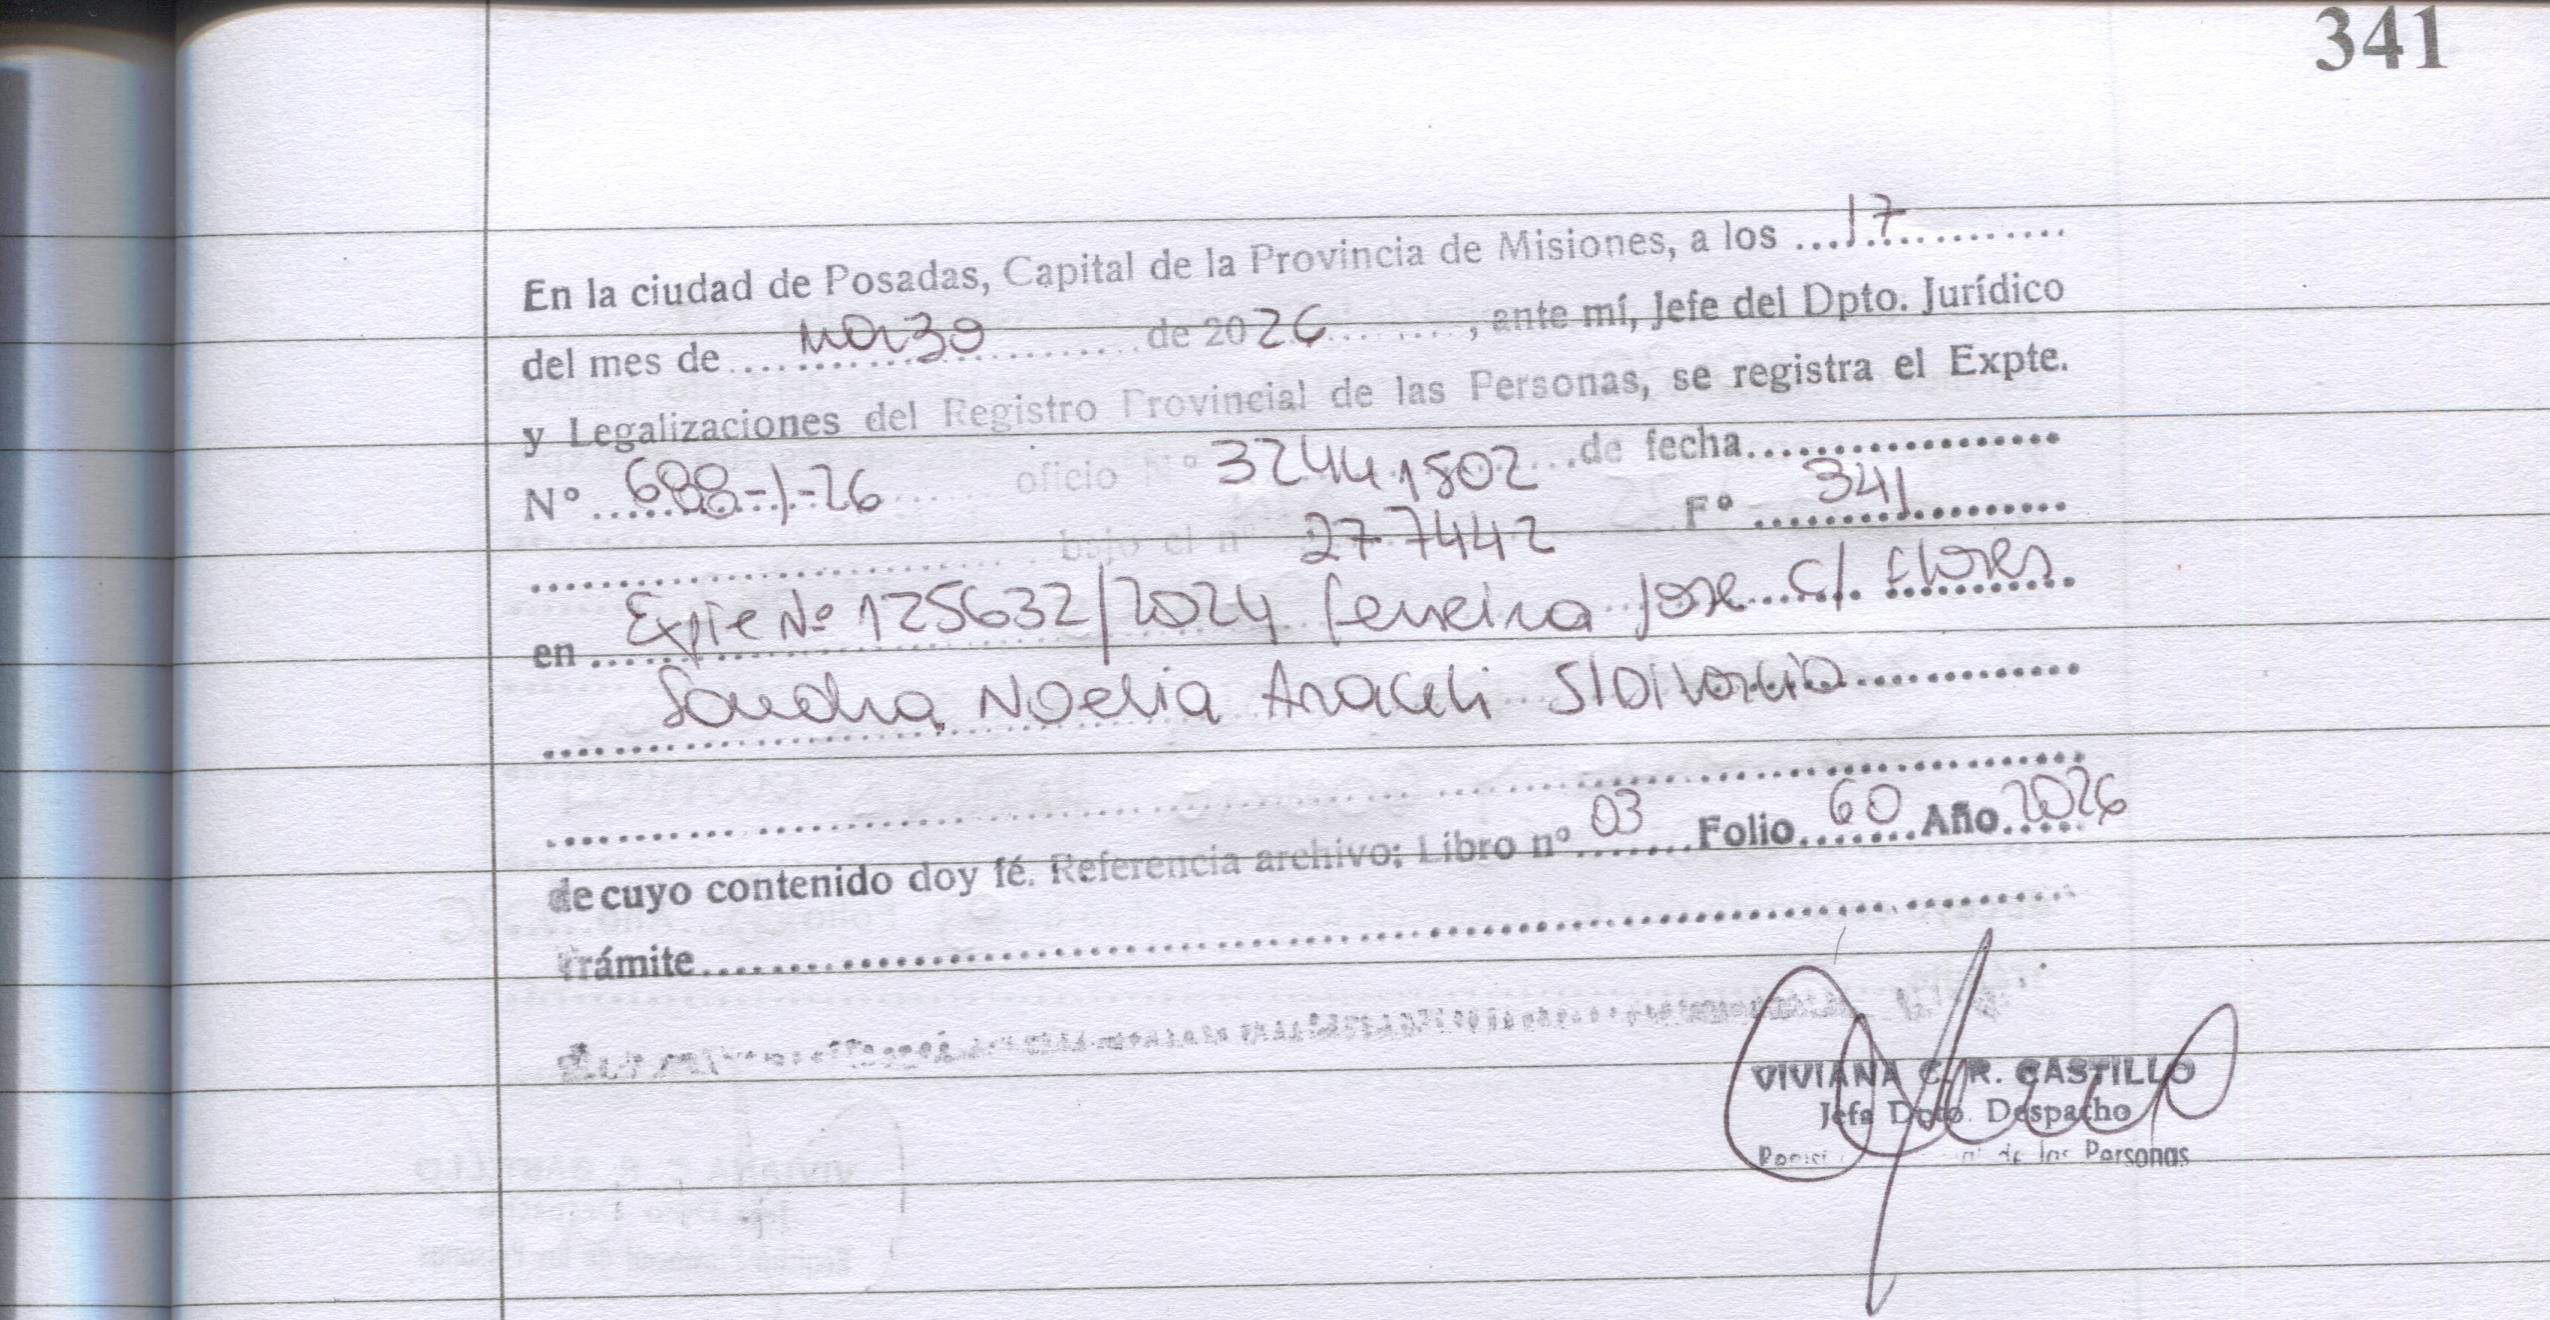 341
En la ciudad de Posadas, Capital de la Provincia de Misiones, a los ...17............
del mes de .... marzo ........ de 2026 ........, ante mí, Jefe del Dpto. Jurídico
y Legalizaciones del Registro Provincial de las Personas, se registra el Expte.
Nº .. 688-1-26 ...... oficio Nº 32441802 ....de fecha...................
.......................... bajo el nº 277442 ..... Fº .... 341 ..........
en .... Expte Nº 125632/2024 ferreira Jose c/. Flores
Sandra Noelia Araceli S/Divorcio................
de cuyo contenido doy fé. Referencia archivo: Libro nº 03 Folio 60 Año 2026
Trámite..........................................................................
VIVIANA C. R. CASTILLO
Jefa Dpto. Despacho
de las Personas